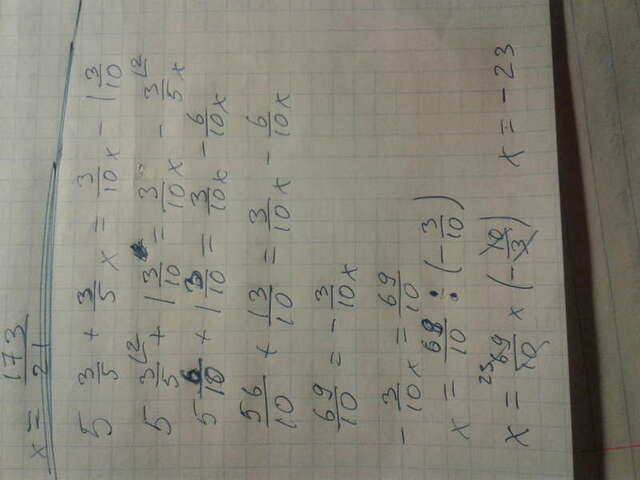 x = 173/21
5 3/5 + 3/5 x = 3/10 x - 1 3/10
5 3/5 \2 + 1 3/10 = 3/10 x - 3/5 \2 x
5 6/10 + 1 3/10 = 3/10 x - 6/10 x
56/10 + 13/10 = 3/10 x - 6/10 x
69/10 = - 3/10 x
- 3/10 x = 69/10
x = 69/10 : (- 3/10)
x = 23 69/10 x (- 10/3) x = - 23